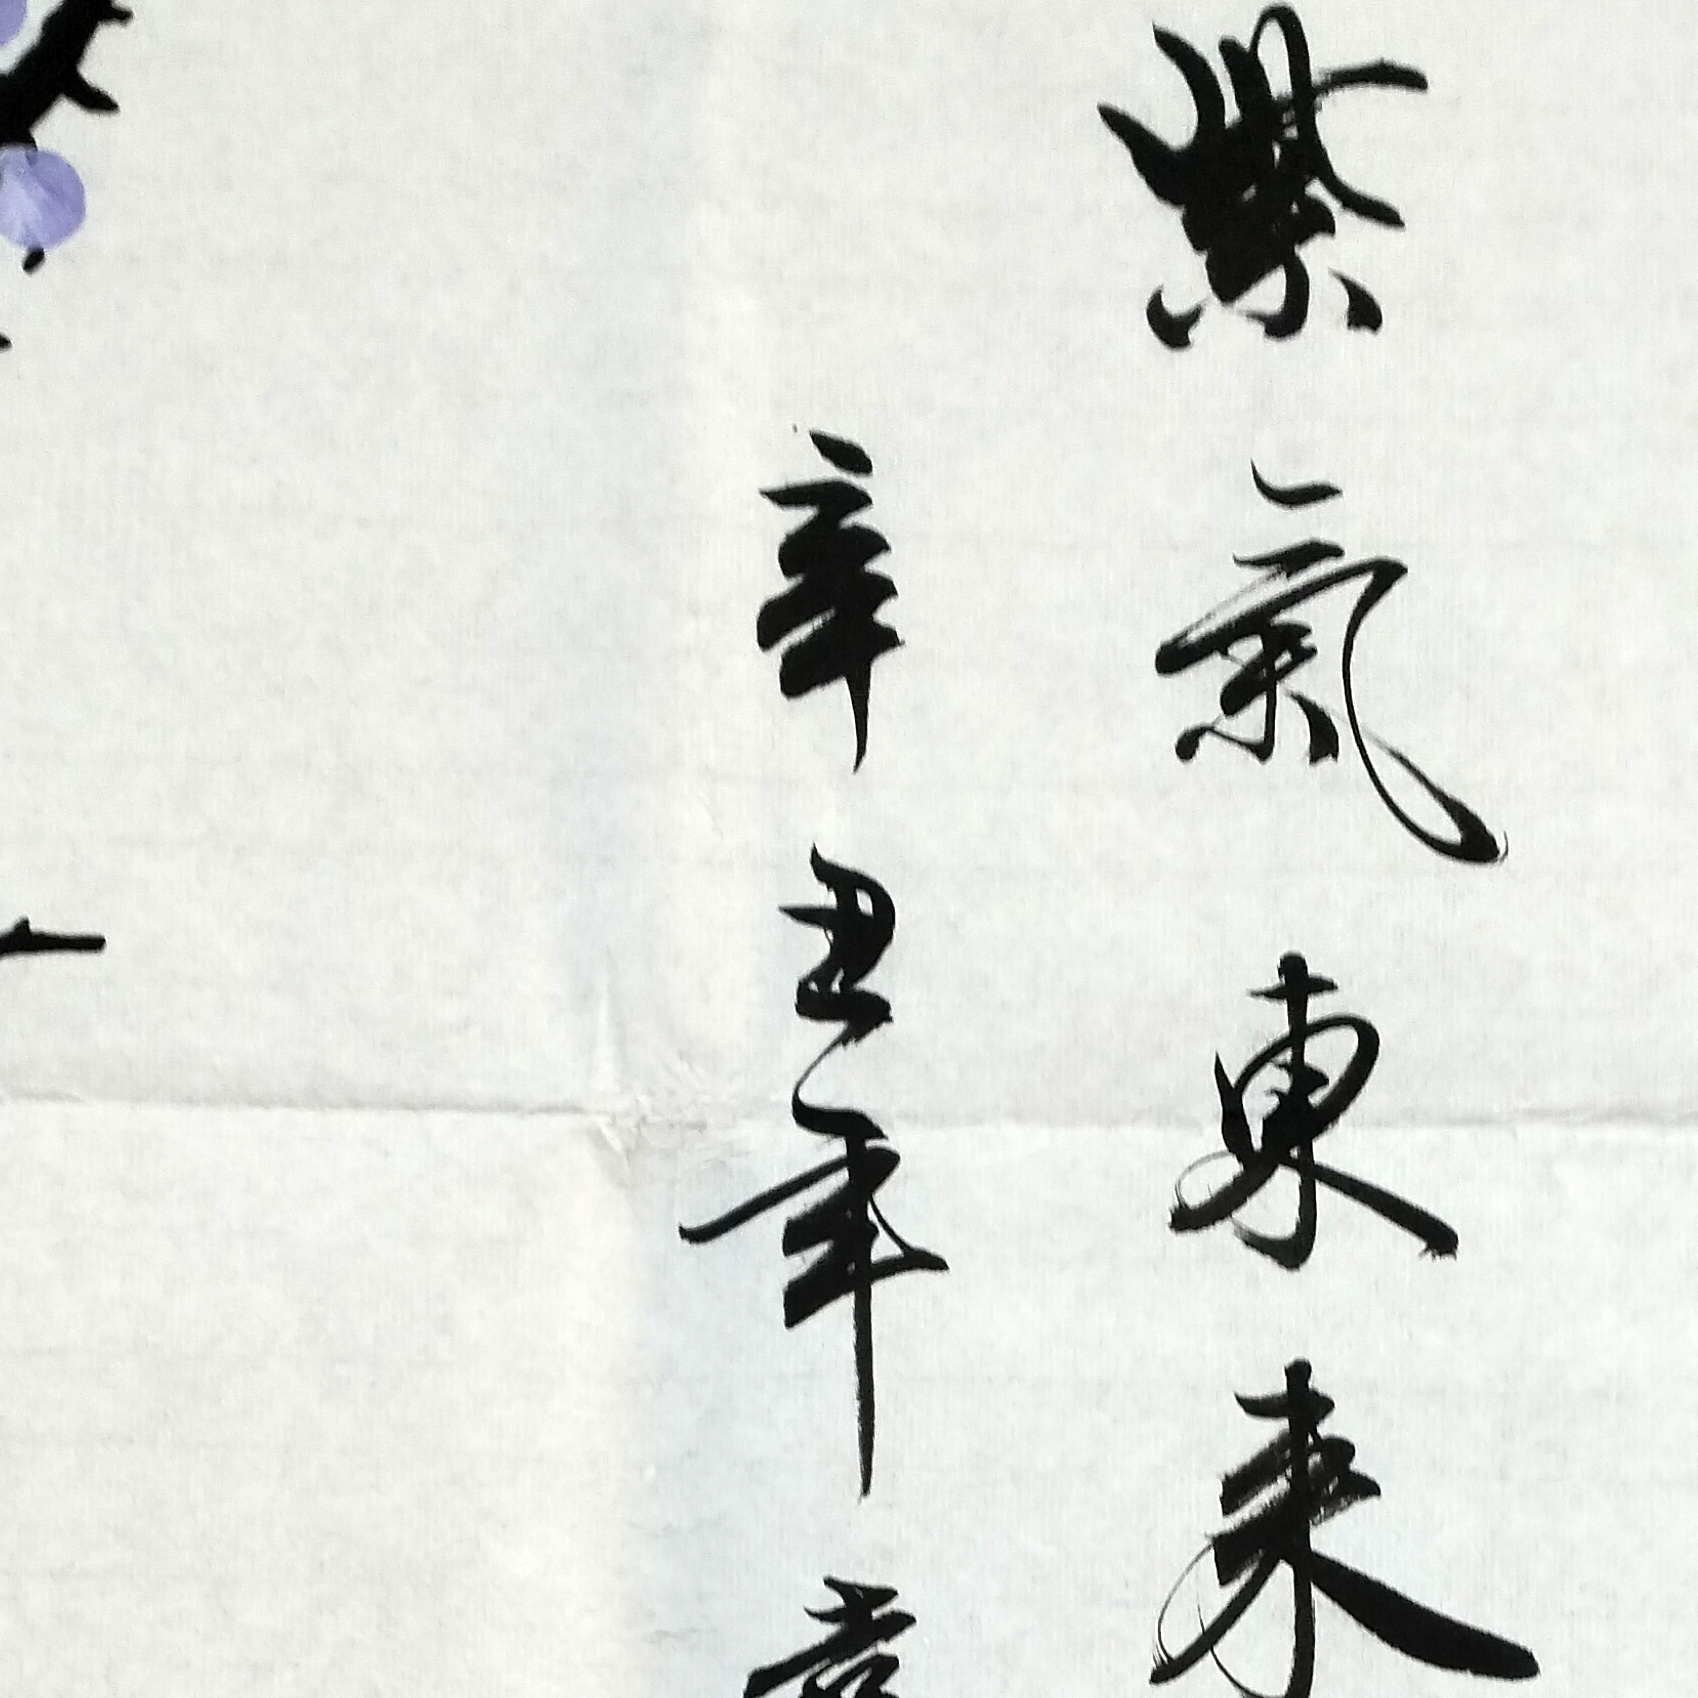 紫氣東来
辛丑年